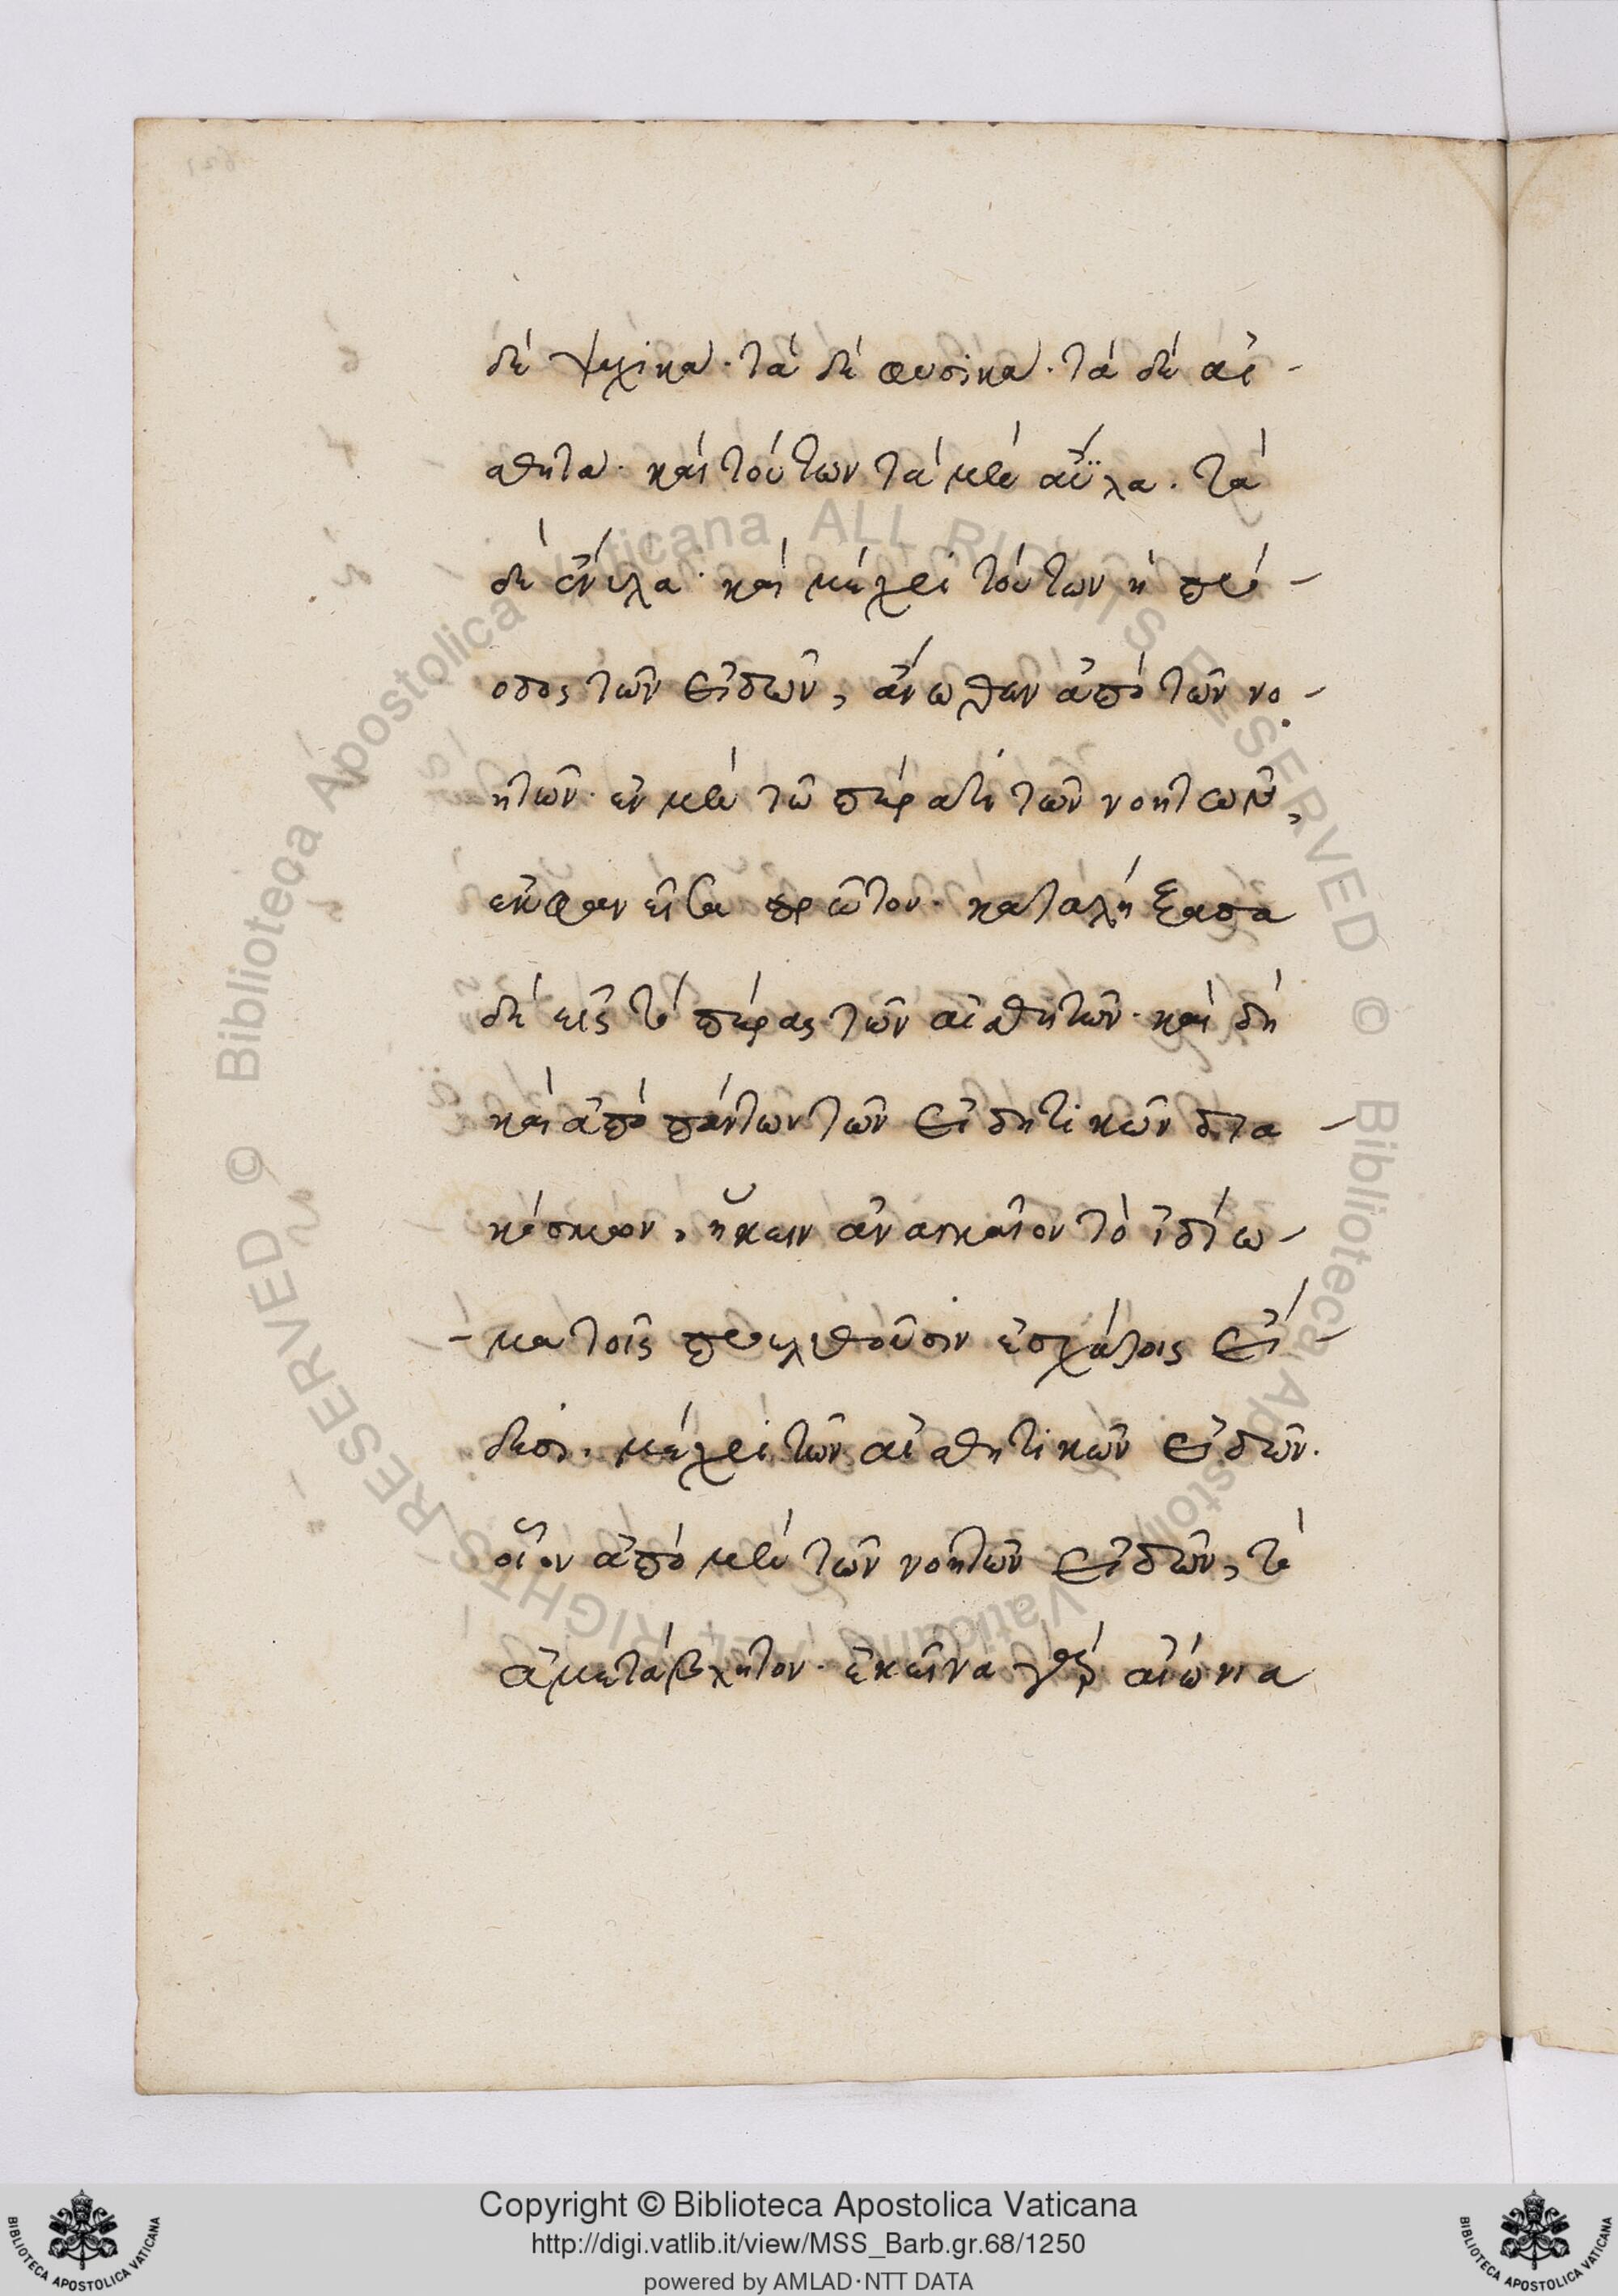 δὲ ψυχικά· τὰ δὲ φυσικά· τὰ δὲ αἰ-
σθητά· καὶ τούτων τὰ μὲν ἄϋλα· τὰ
δὲ ἔνυλα· καὶ μέχρι τούτων ἡ πρό-
οδος τῶν εἰδῶν, ἄνωθεν ἀπὸ τῶν νο-
ητῶν· ἐν μὲν τῶ πέρατι τῶν νοητῶν,
ἐκφανεῖσα πρῶτον· καταλήξασα
δὲ εἰς τὸ πέρας τῶν αἰσθητῶν· καὶ δὴ
καὶ ἀπὸ πάντων τῶν εἰδητικῶν δια-
κόσμων, ἥκειν ἀναγκαῖον τὸ ἰδίω-
-μα τοῖς προελθοῦσιν ἐσχάτοις εἴ-
δεσι· μέχρι τῶν αἰσθητικῶν εἰδῶν.
οἷον ἀπὸ μὲν τῶν νοητῶν εἰδῶν, τὸ
ἀμετάβλητον· ἐκεῖνα γὰρ αἰώνια
Copyright © Biblioteca Apostolica Vaticana
http://digi.vatlib.it/view/MSS_Barb.gr.68/1250
powered by AMLAD·NTT DATA
BIBLIOTECA APOSTOLICA VATICANA
BIBLIOTECA APOSTOLICA VATICANA
© Biblioteca Apostolica Vaticana ALL RIGHTS RESERVED © Biblioteca Apostolica Vaticana ALL RIGHTS RESERVED